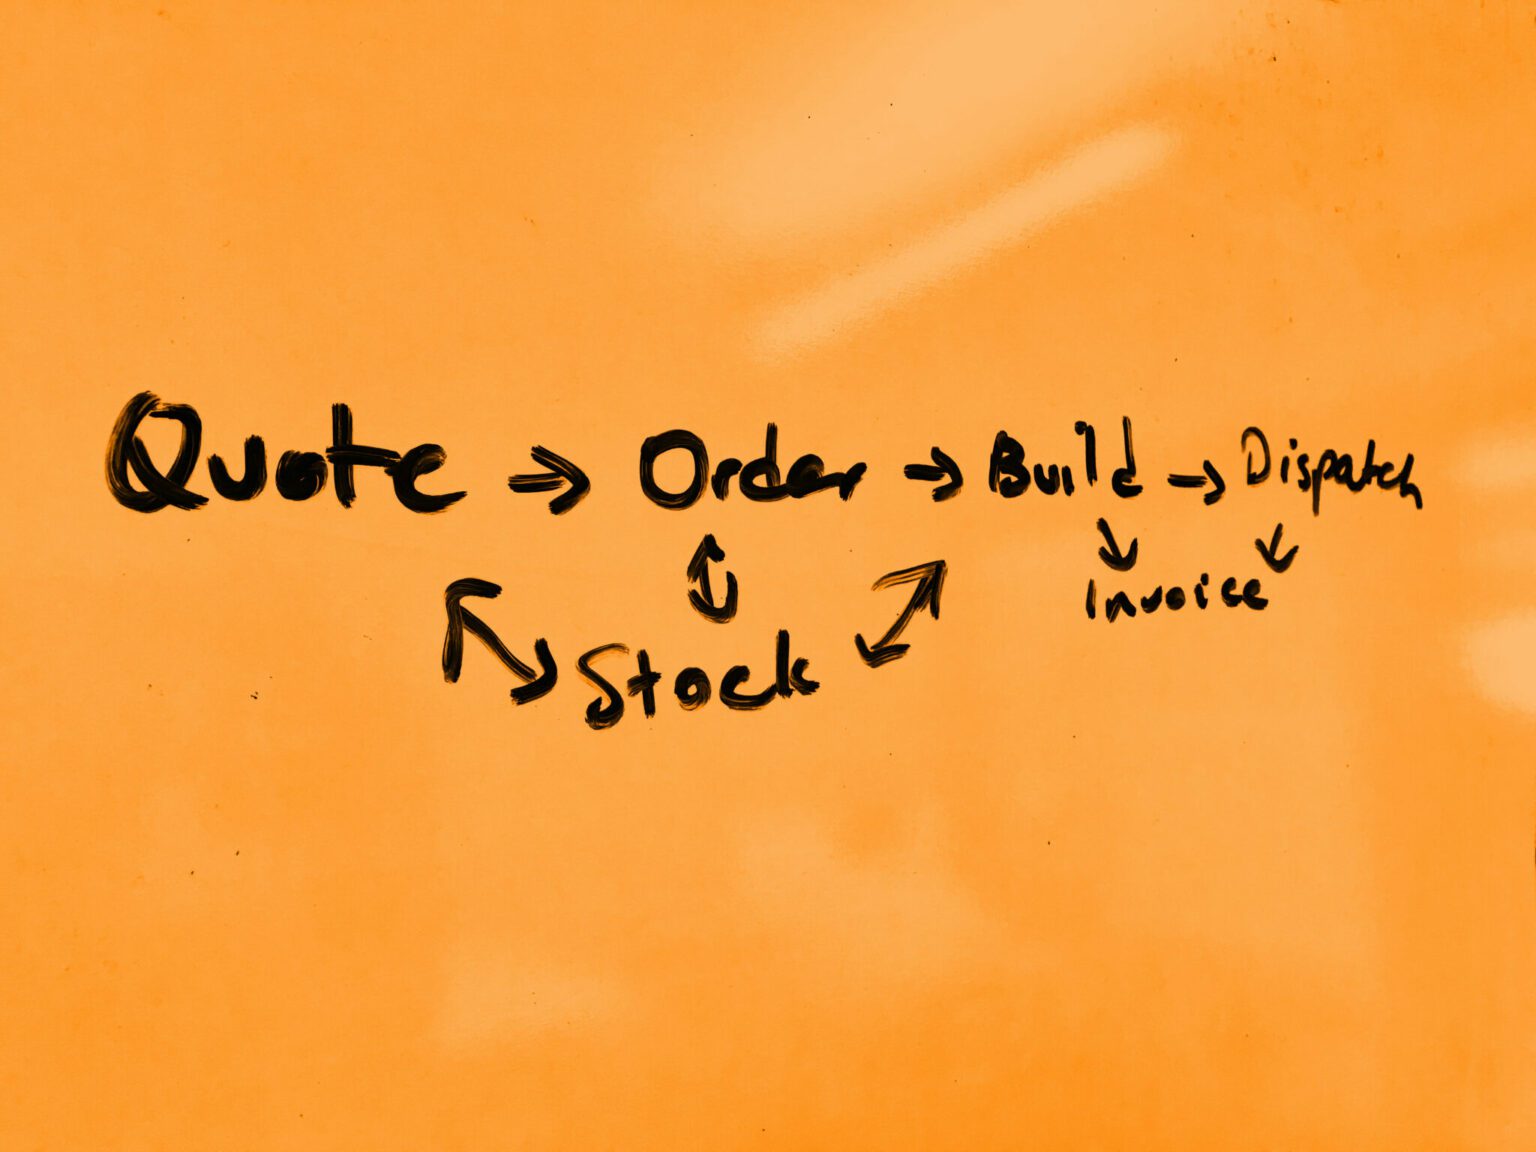 Quote → Order → Build → Dispatch
Invoice
Stock